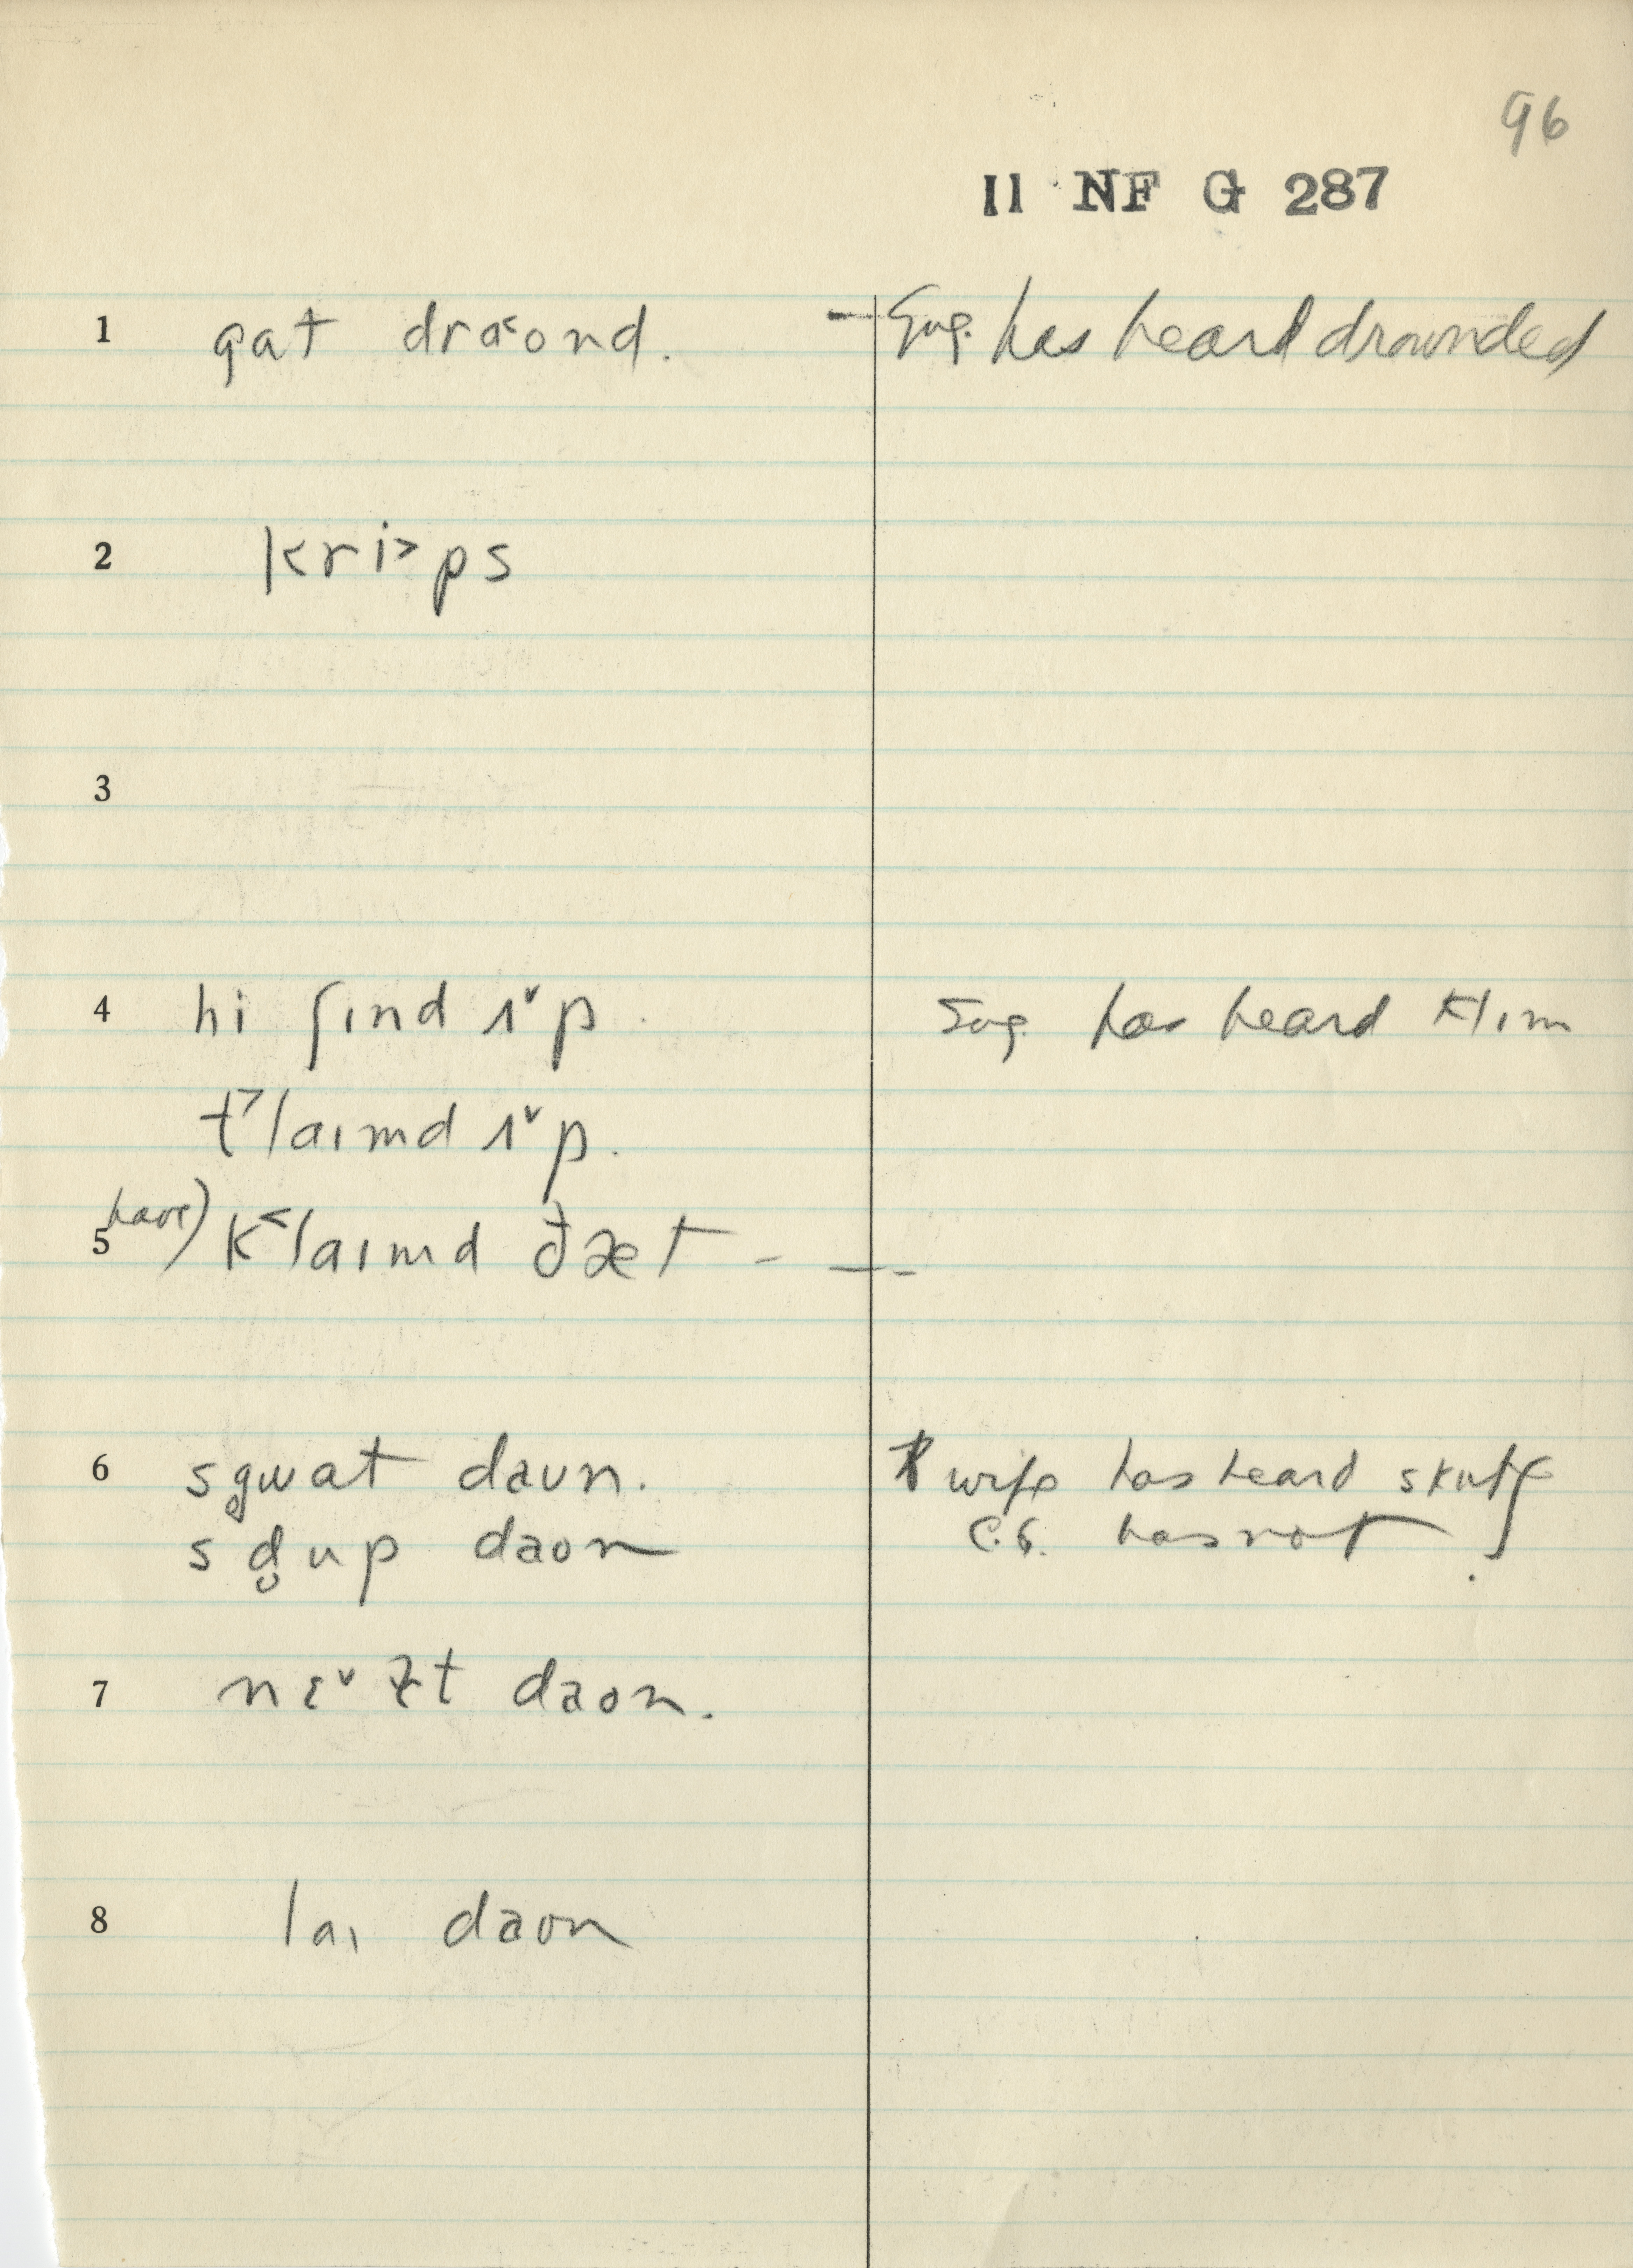 96
11 NF G 287
1 gat dra˂ond. — Sug. has heard drownded
2 kri˃ps
3
4 hi ʃɪnd ʌˇp. Sug. has heard klɪm
t˃laɪmd ʌˇp.
have)
5 k˂laɪmd ðæt - — -
6 sg̥wat daun. wife has heard skut
sd̥up daon C.G. has not
7 nɛˇɫt daon.
8 laɪ daon